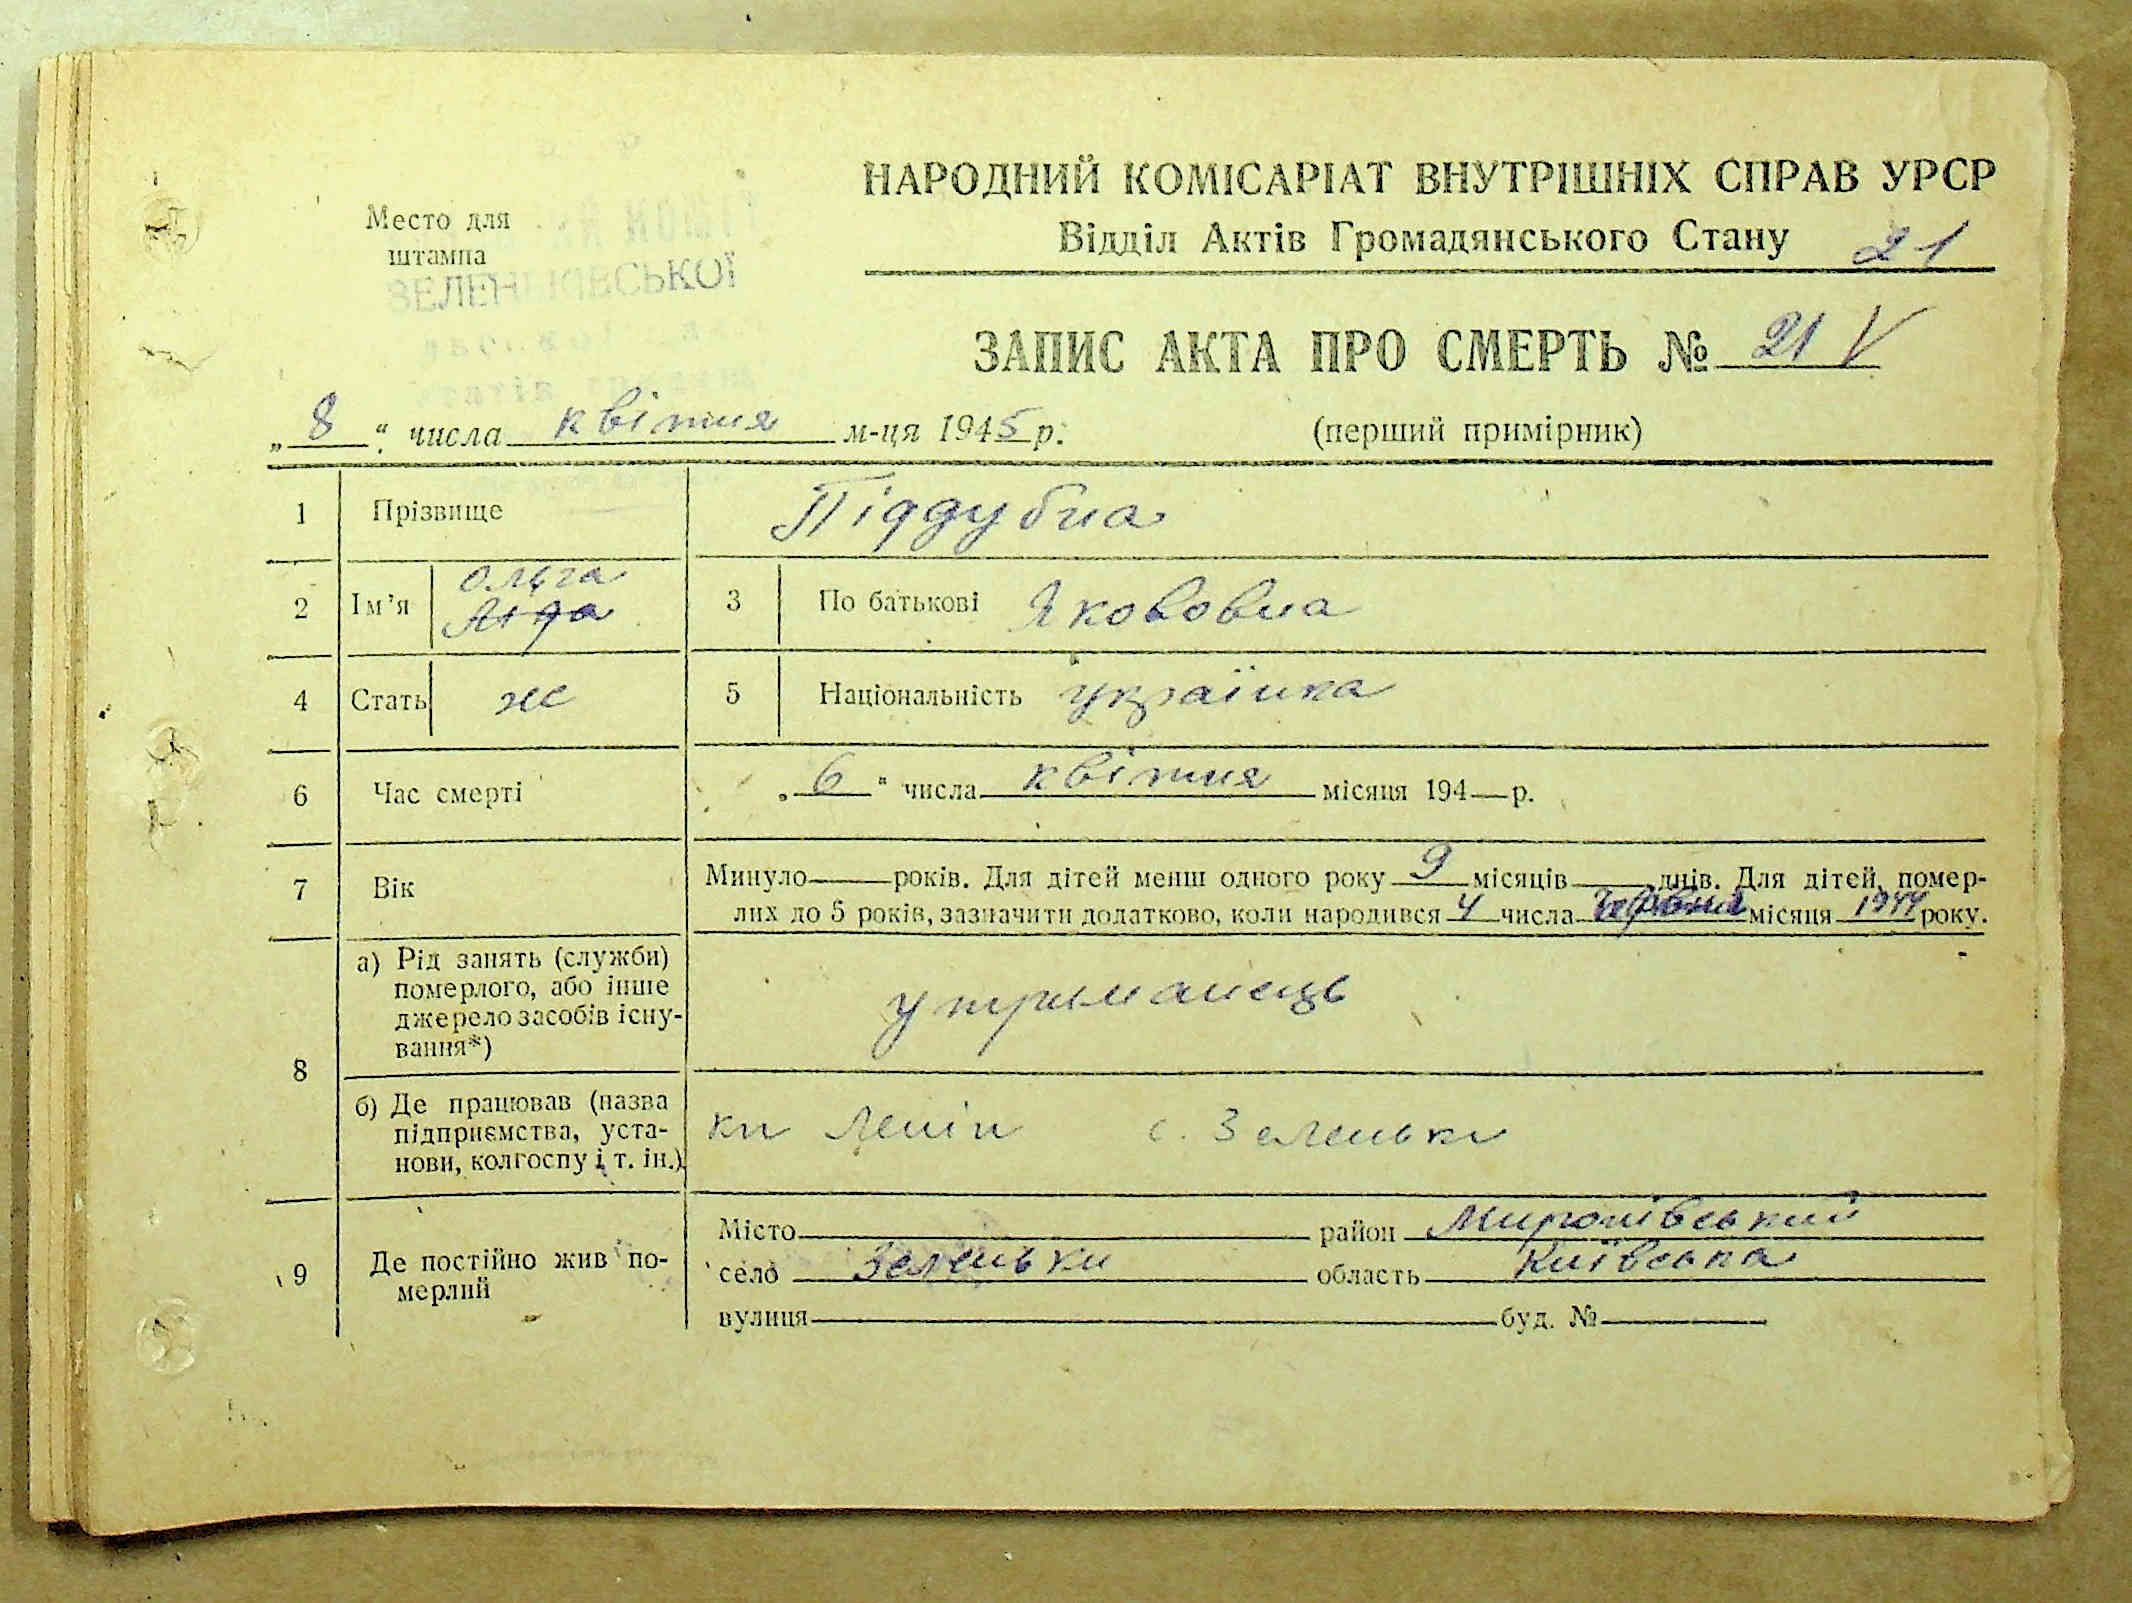 НАРОДНИЙ КОМІСАРІАТ ВНУТРІШНІХ СПРАВ УРСР
Відділ Актів Громадянського Стану 21
Место для
штампа
ЗЕЛЕНЬКІВСЬКОЇ
ЗАПИС АКТА ПРО СМЕРТЬ № 21 V
„8“ числа квітня м-ця 1945 р. (перший примірник)
1 Прізвище Піддубна
2 Ім’я Ольга Лида 3 По батькові Якововна
4 Стать ж 5 Національність українка
6 Час смерті „6“ числа квітня місяця 194—р.
7 Вік Минуло—років. Для дітей менш одного року 9 місяців—днів. Для дітей, помер-
лих до 5 років, зазначити додатково, коли народився 4 числа червня місяця 1944 року.
8 а) Рід занять (служби)
померлого, або інше
джерело засобів існу-
вання*) утриманець
б) Де працював (назва
підприємства, уста-
нови, колгоспу і т. ін.) кп Леніп с. Зеленьки
9 Де постійно жив по-
мерлий
Місто район Миронівський
село Зеленьки область Київська
вулиця буд. №